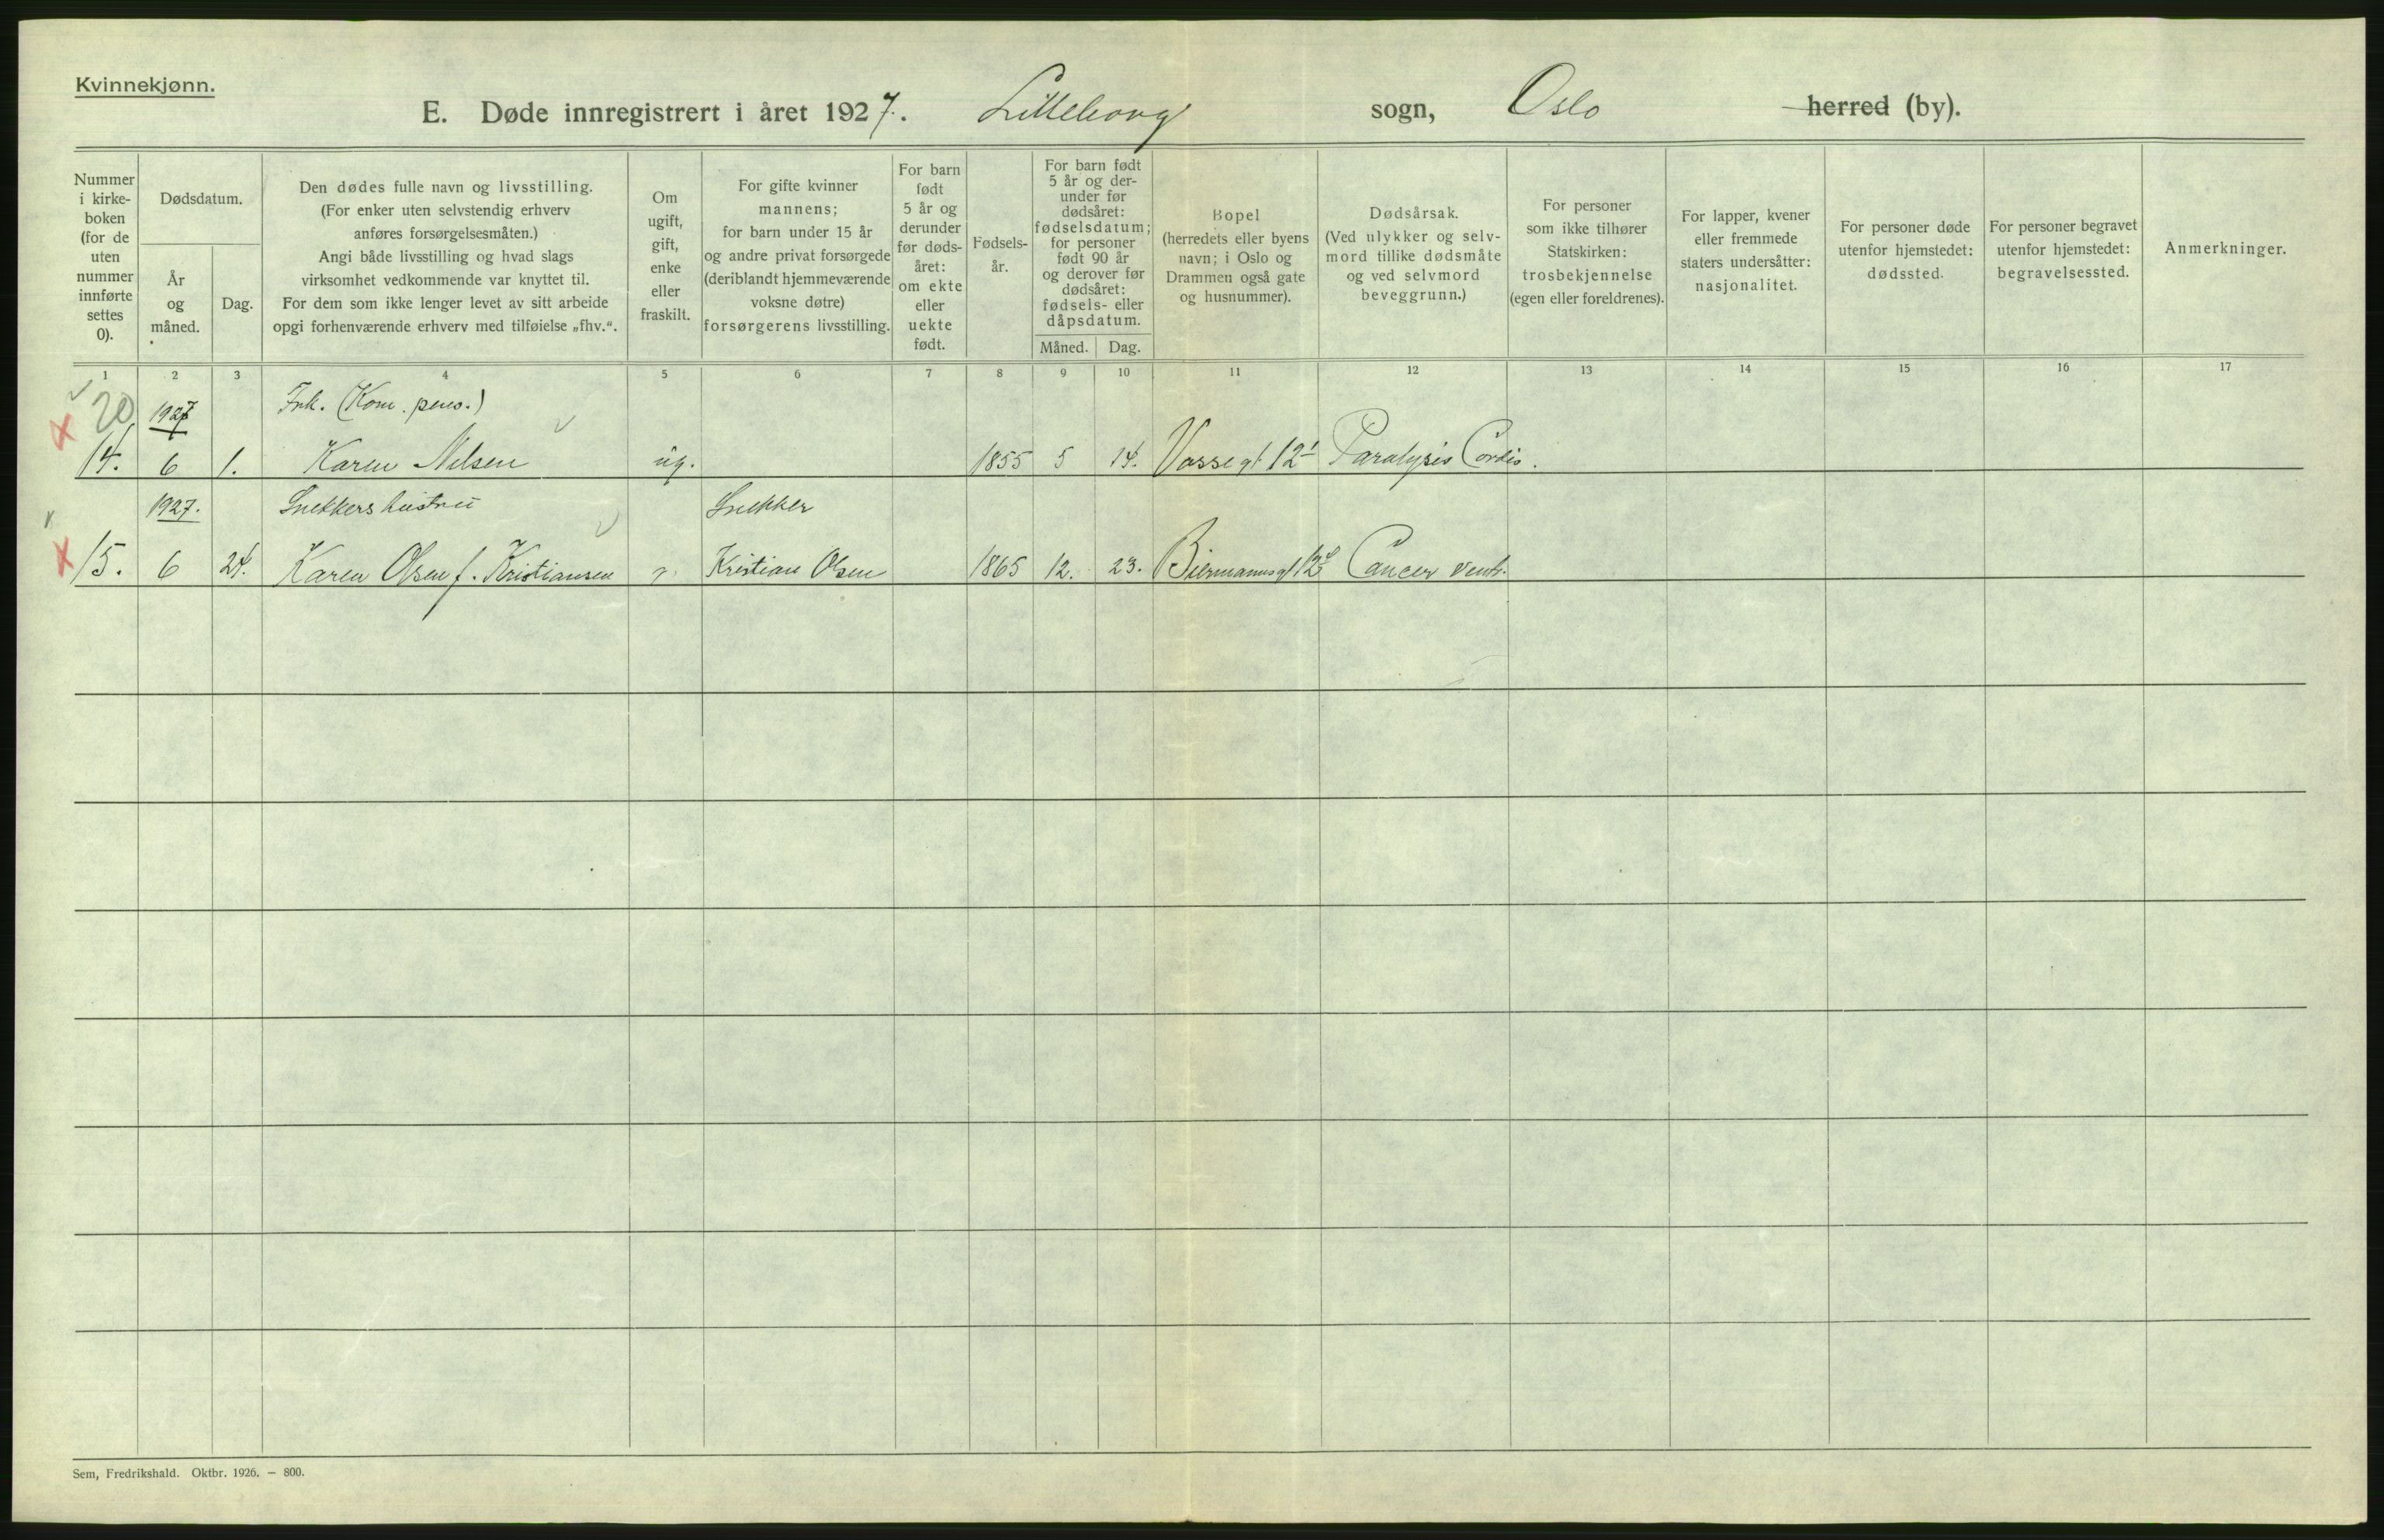 Kvinnekjønn.
E. Døde innregistrert i året 1927. Lilleborg sogn, Oslo herred (by).
Nummer
i kirke-
boken
(for de
uten
nummer
innførte
settes
0).
Dødsdatum.
År
og
måned.
Dag.
Den dødes fulle navn og livsstilling.
(For enker uten selvstendig erhverv
anføres forsørgelsesmåten.)
Angi både livsstilling og hvad slags
virksomhet vedkommende var knyttet til.
For dem som ikke lenger levet av sitt arbeide
opgi forhenværende erhverv med tilføielse „fhv.“.
Om
ugift,
gift,
enke
eller
fraskilt.
For gifte kvinner
mannens;
for barn under 15 år
og andre privat forsørgede
(deriblandt hjemmeværende
voksne døtre)
forsørgerens livsstilling.
For barn
født
5 år og
derunder
før døds-
året:
om ekte
eller
uekte
født.
Fødsels-
år.
For barn født
5 år og der-
under før
dødsåret:
fødselsdatum;
for personer
født 90 år
og derover før
dødsåret:
fødsels- eller
dåpsdatum.
Måned. Dag.
Bopel
(herredets eller byens
navn; i Oslo og
Drammen også gate
og husnummer).
Dødsårsak.
(Ved ulykker og selv-
mord tillike dødsmåte
og ved selvmord
beveggrunn.)
For personer
som ikke tilhører
Statskirken:
trosbekjennelse
(egen eller foreldrenes).
For lapper, kvener
eller fremmede
staters undersåtter:
nasjonalitet.
For personer døde
utenfor hjemstedet:
dødssted.
For personer begravet
utenfor hjemstedet:
begravelsessted.
Anmerkninger.
1 2 3 4 5 6 7 8 9 10 11 12 13 14 15 16 17
20 1927 Frk. (Kom. pens.)
14. 6 1. Karen Nilsen ug. 1855 5 14. Vossegt 12 Paralysis Cordis.
1927. Snekkers hustru Snekker
15. 6 24. Karen Olsen f. Kristiansen g. Kristian Olsen 1865 12. 23. Biermannsgt 12 Cancer ventr.
Sem, Fredrikshald. Oktbr. 1926. — 800.